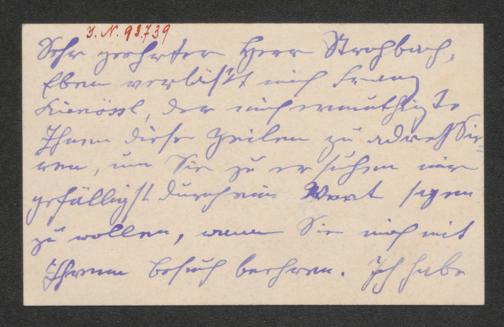 J. N. 93.739
Sehr geehrter Herr Strohbach,
Eben verläßt mich Franz
Kienössl, der mich ermuthigte
Ihnen diese Zeilen zu adressie-
ren, um Sie zu ersuchen mir
gefälligst durch ein Wort sagen
zu wollen, wann Sie mich mit
Ihrem Besuch beehren. Ich habe